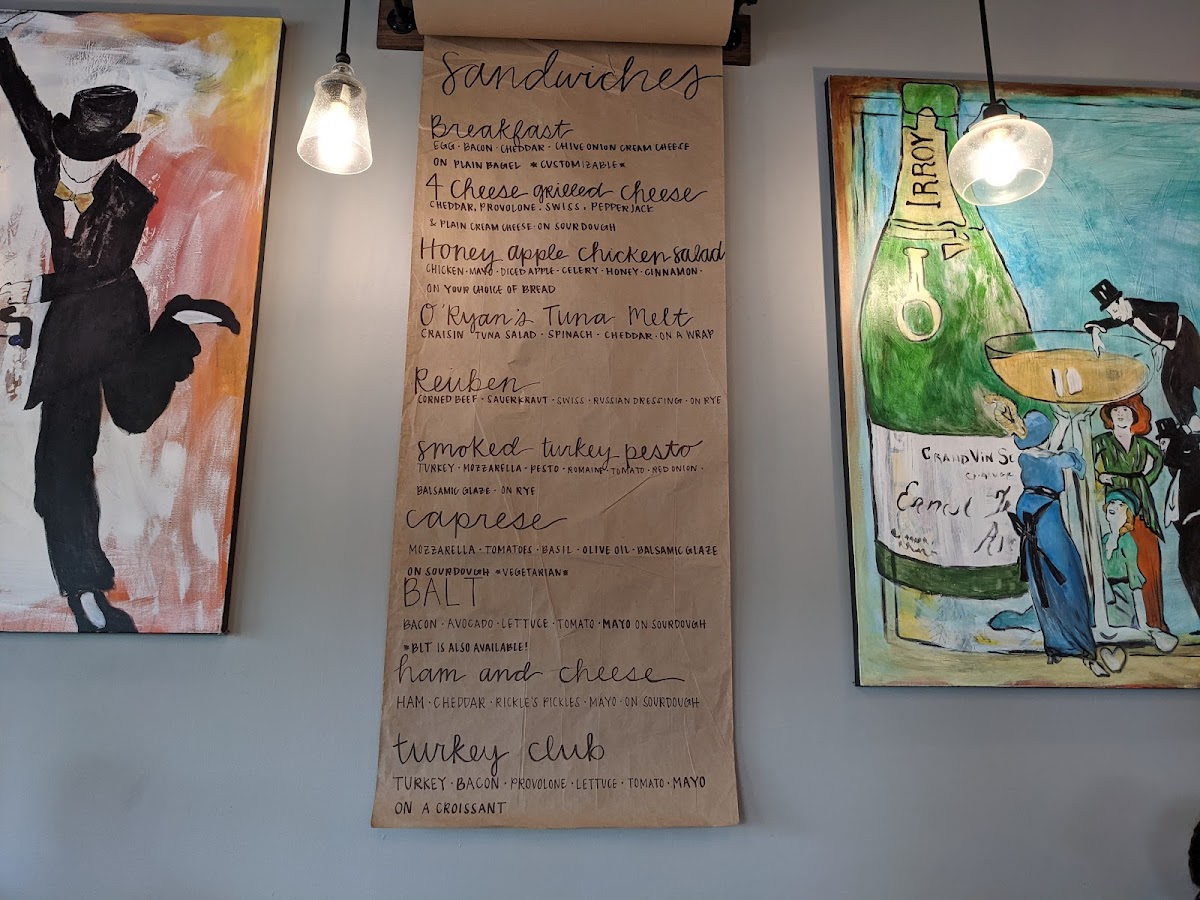 Sandwiches
Breakfast
EGG · BACON · CHEDDAR · CHIVE ONION CREAM CHEESE
ON PLAIN BAGEL *CUSTOMIZABLE*
4 Cheese grilled cheese
CHEDDAR, PROVOLONE, SWISS, PEPPERJACK
& PLAIN CREAM CHEESE · ON SOURDOUGH
Honey apple chicken salad
CHICKEN · MAYO · DICED APPLE · CELERY · HONEY · CINNAMON ·
ON YOUR CHOICE OF BREAD
O'Ryan's Tuna Melt
CRAISIN TUNA SALAD · SPINACH · CHEDDAR · ON A WRAP
Reuben
CORNED BEEF · SAUERKRAUT · SWISS · RUSSIAN DRESSING · ON RYE
smoked turkey pesto
TURKEY · MOZZARELLA · PESTO · ROMAINE · TOMATO · RED ONION ·
BALSAMIC GLAZE · ON RYE
caprese
MOZZARELLA · TOMATOES · BASIL · OLIVE OIL · BALSAMIC GLAZE
ON SOURDOUGH *VEGETARIAN*
BALT
BACON · AVOCADO · LETTUCE · TOMATO · MAYO ON SOURDOUGH
*BLT IS ALSO AVAILABLE!
ham and cheese
HAM · CHEDDAR · RICKLE'S PICKLES · MAYO · ON SOURDOUGH
turkey club
TURKEY · BACON · PROVOLONE · LETTUCE · TOMATO · MAYO
ON A CROISSANT
IRROY
GRAND VIN
Ernest